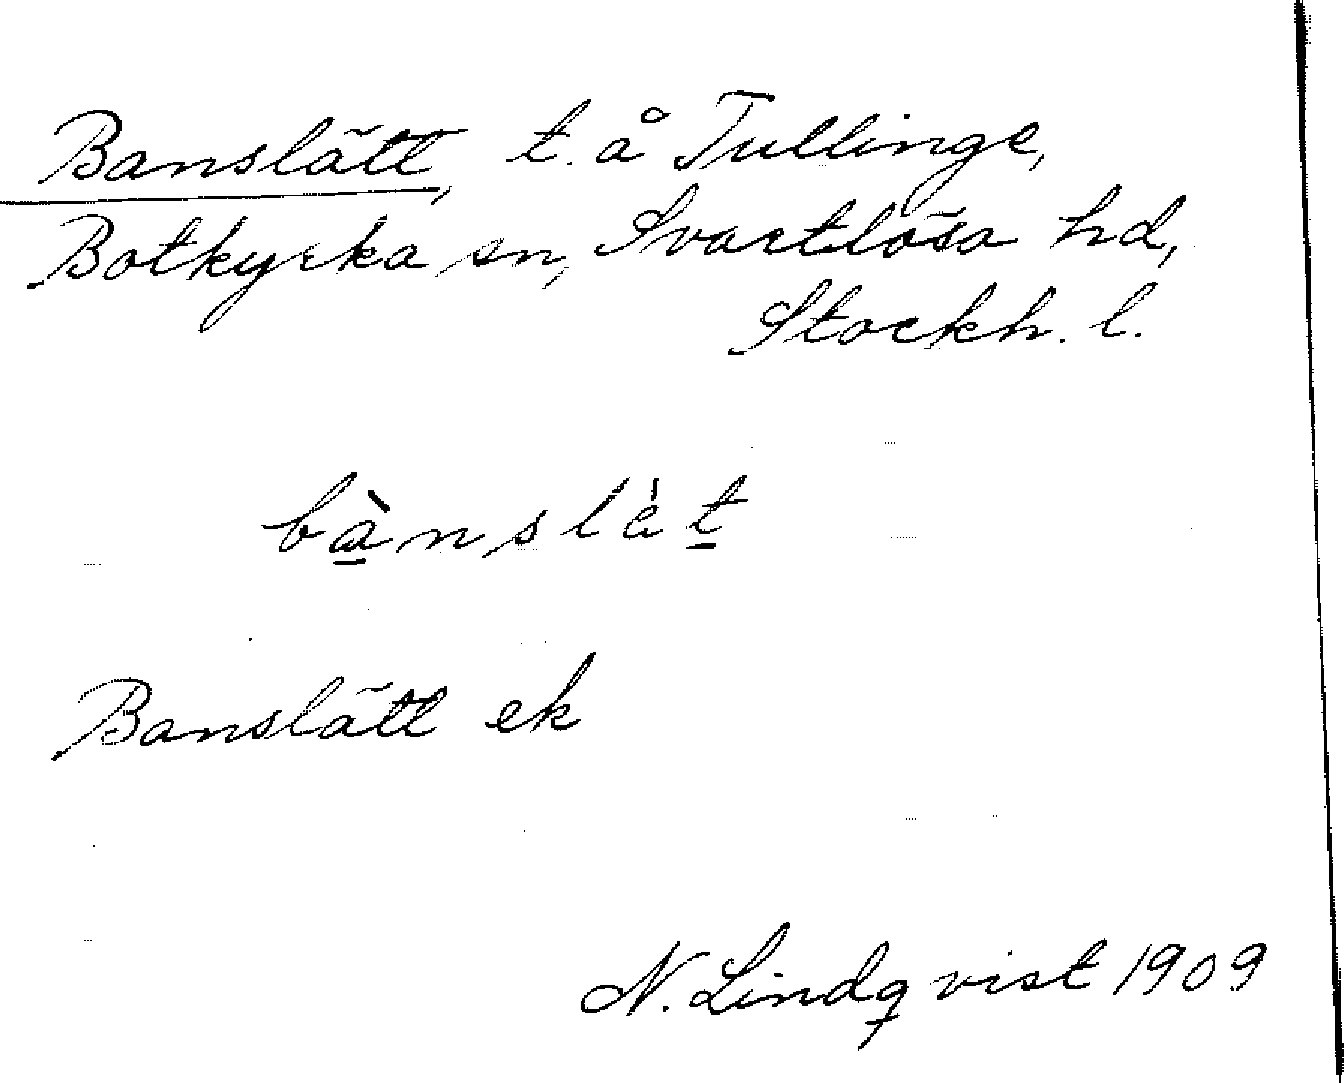 Banslätt, t. å Tullinge,
Botkyrka sn, Svartlösa hd,
Stockh. l.
bànslèt
Banslätt ek
N. Lindqvist 1909